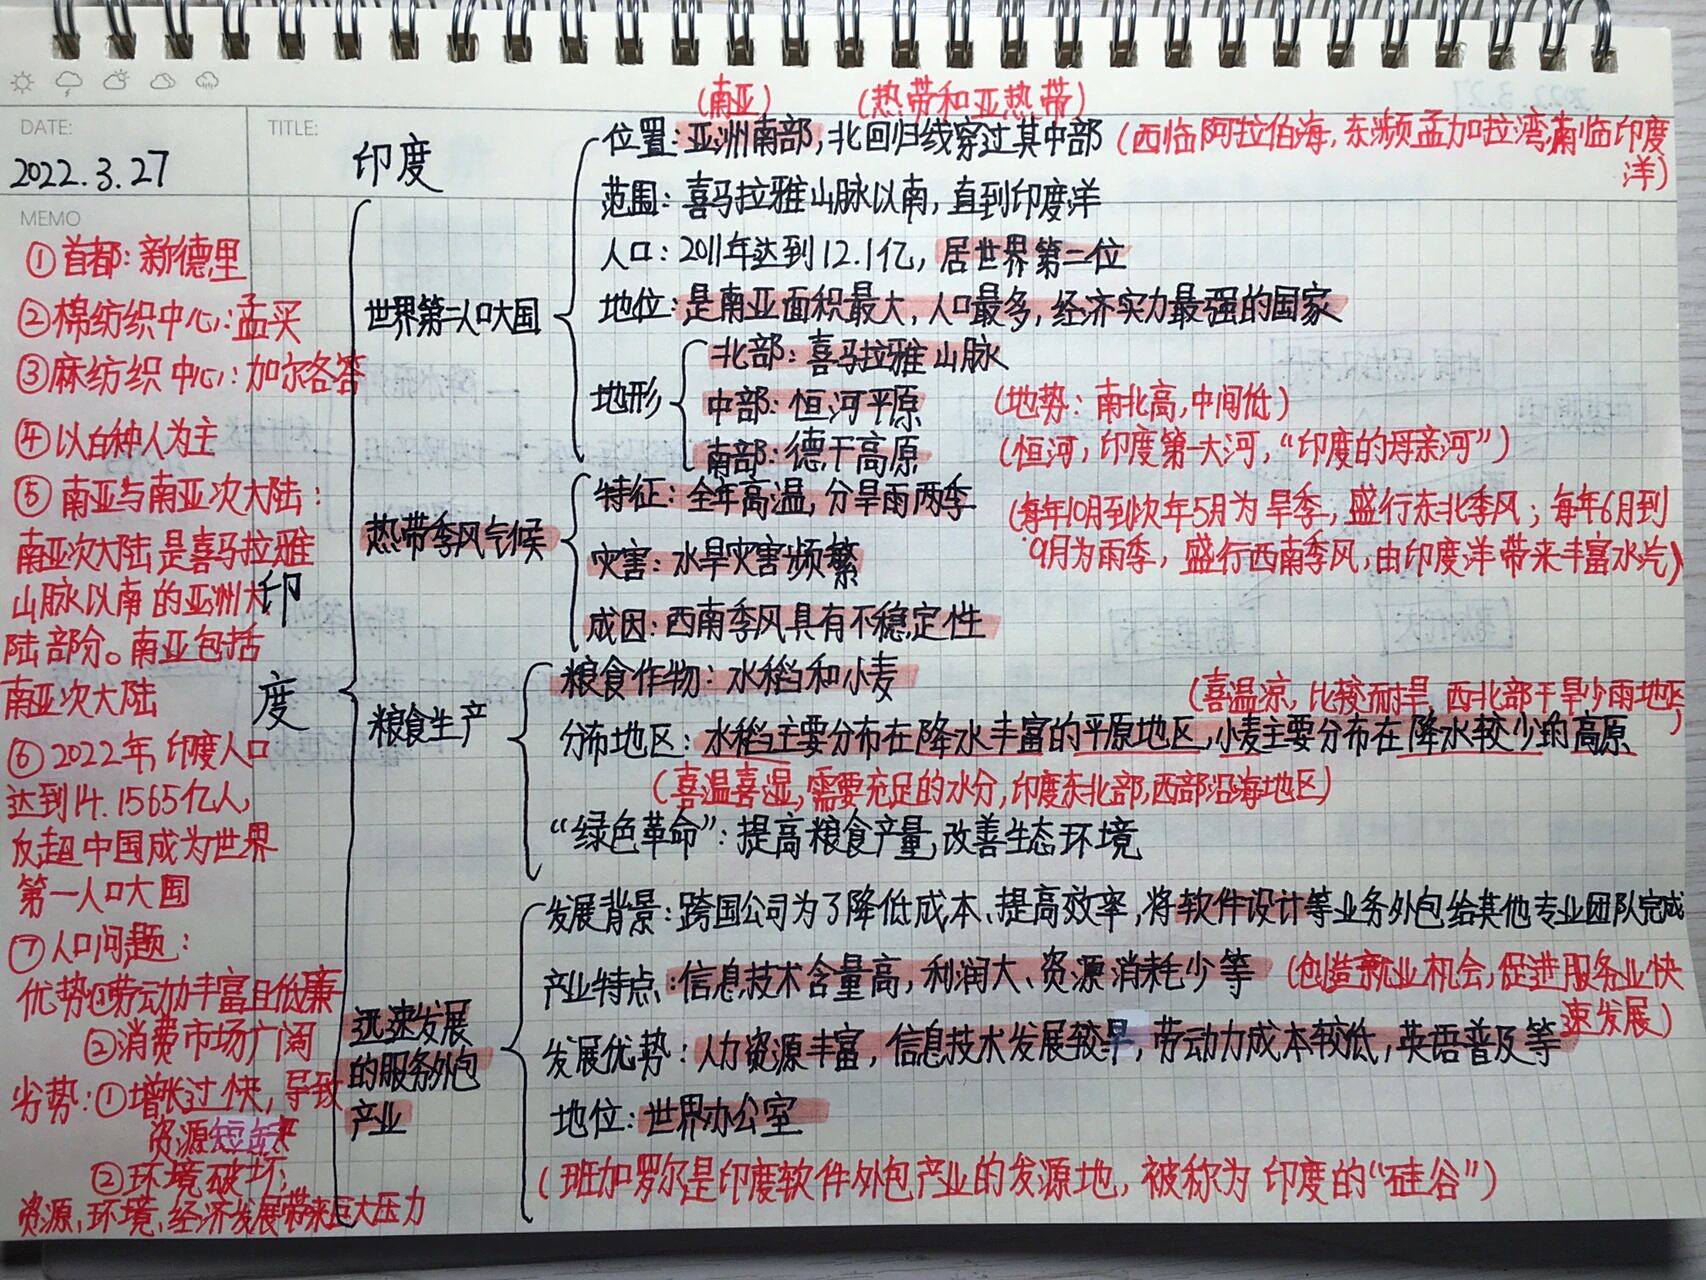 (南亚) (热带和亚热带)
DATE: TITLE:
2022.3.27
印度
MEMO
①首都:新德里
②棉纺织中心:孟买
③麻纺织中心:加尔各答
④以白种人为主
⑤南亚与南亚次大陆:
南亚次大陆是喜马拉雅
山脉以南的亚洲大
陆部分。南亚包括
南亚次大陆
⑥2022年,印度人口
达到14.1565亿人,
反超中国成为世界
第一人口大国
⑦人口问题:
优势:①劳动力丰富且低廉
②消费市场广阔
劣势:①增长过快,导致
资源短缺
②环境破坏;
资源、环境、经济发展带来巨大压力
印度
世界第二人口大国
位置:亚洲南部,北回归线穿过其中部(西临阿拉伯海,东濒孟加拉湾,南临印度
洋)
范围:喜马拉雅山脉以南,直到印度洋
人口:2011年达到12.1亿,居世界第二位
地位:是南亚面积最大,人口最多,经济实力最强的国家
地形
北部:喜马拉雅山脉
中部:恒河平原 (地势:南北高,中间低)
南部:德干高原 (恒河,印度第一大河,“印度的母亲河”)
热带季风气候
特征:全年高温,分旱雨两季 (每年10月到次年5月为旱季,盛行东北季风;每年6月到
9月为雨季,盛行西南季风,由印度洋带来丰富水汽)
灾害:水旱灾害频繁
成因:西南季风具有不稳定性
粮食生产
粮食作物:水稻和小麦
(喜温凉,比较耐旱,西北部干旱少雨地区)
分布地区:水稻主要分布在降水丰富的平原地区,小麦主要分布在降水较少的高原
(喜温喜湿,需要充足的水分,印度东北部,西部沿海地区)
“绿色革命”:提高粮食产量,改善生态环境
迅速发展
的服务外包
产业
发展背景:跨国公司为了降低成本、提高效率,将软件设计等业务外包给其他专业团队完成
产业特点:信息技术含量高,利润大、资源消耗少等 (创造就业机会,促进服务业快
速发展)
发展优势:人力资源丰富,信息技术发展较早,劳动力成本较低,英语普及等
地位:世界办公室
(班加罗尔是印度软件外包产业的发源地,被称为印度的“硅谷”)